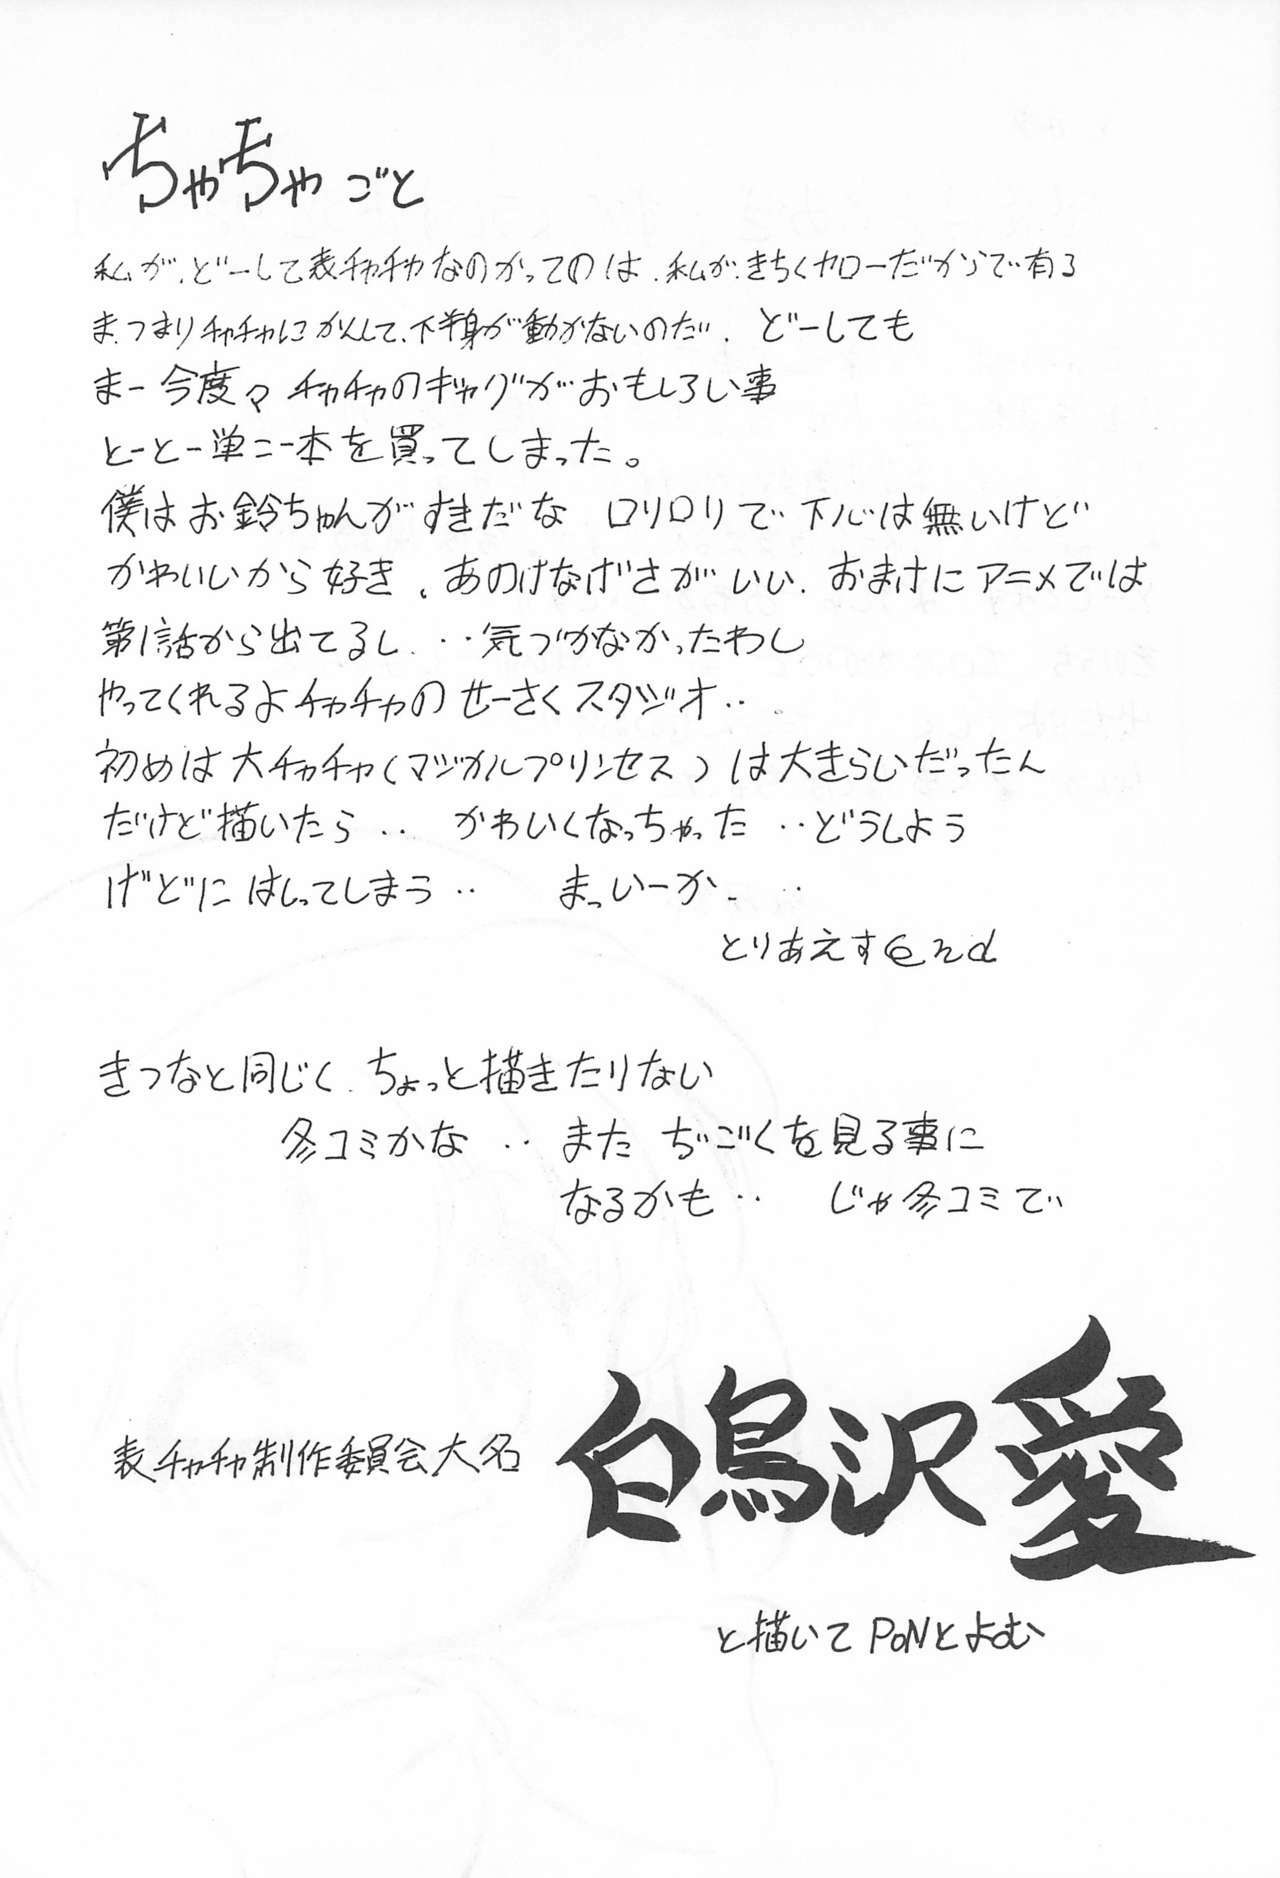 ちゃちゃごと
私が、どーして表チャチャなのかってのは、私が、きちくヤローだからで有る
ま、つまりチャチャにかんして、下半身が動かないのだ、どーしても
まー今度々チャチャのギャグがおもしろい事
とーとー単こー本を買ってしまった。
僕はお鈴ちゃんがすきだな ロリロリで下心は無いけど
かわいいから好き、あのけなげさがいい、おまけにアニメでは
第1話から出てるし、‥気づかなかったわし
やってくれるよチャチャのせーさくスタジオ‥
初めは大チャチャ(マジカルプリンセス)は大きらいだったん
だけど描いたら‥ かわいくなっちゃった‥どうしよう
げどにはしってしまう‥ まっいーか、‥
とりあえすend
きつなと同じく、ちょっと描きたりない
冬コミかな‥また ぢごくを見る事に
なるかも‥ じゃ冬コミで
表チャチャ制作委員会大名 白鳥沢愛
と描いてPoNとよむ